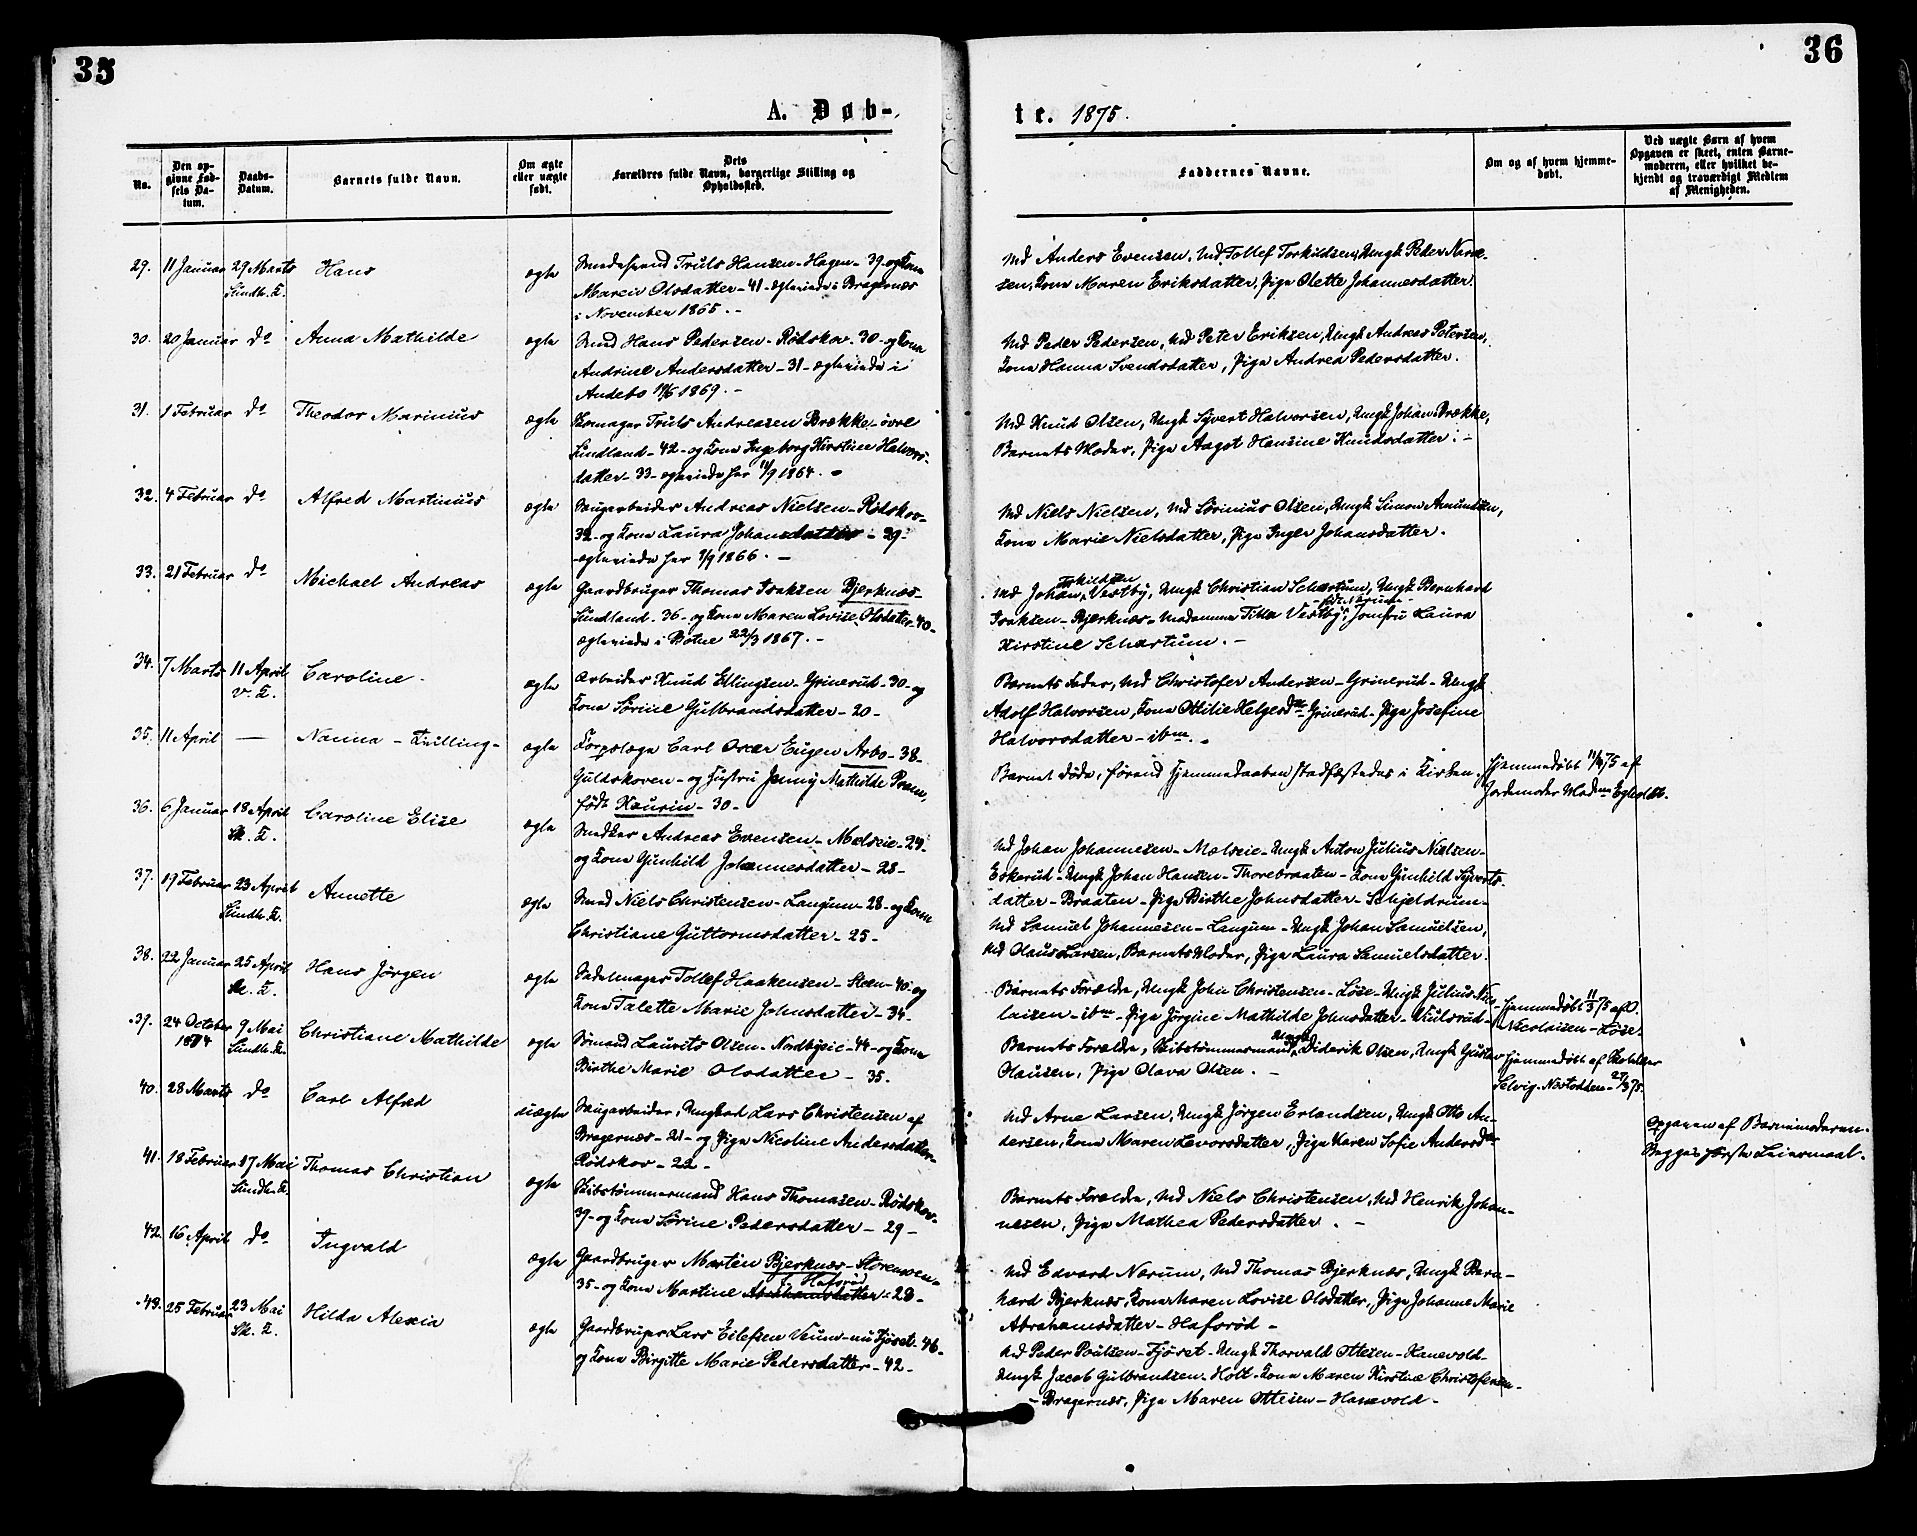 35
36
A. Døb-
te. 1875.
No.
Den op-
givne Fød-
sels Da-
tum.
Daabs-
Datum.
Barnets fulde Navn.
Om ægte
eller uægte
født.
Dets
Forældres fulde Navn, borgerlige Stilling og
Opholdssted.
Faddernes Navne.
Om og af hvem hjemme-
døbt.
Ved uægte Barn af hvem
Opgaven er skeet, enten Barne-
moderen, eller hvilket be-
kjendt og troværdigt Medlem
af Menigheden.
29. 11 Januar 29 Marts Hans ægte
Sundh. K.
Truls Hansen - Hagen - 39 - og Kone
Maren Olsdatter - 41 - ægteviede i Bragernæs
i November 1865. -
Md Anders Evensen, Md. Tollef Torkildsen, Ungk Peder
Kone Maren Eriksdatter, Pige Olette Johannesdatter.
30. 20 Januar do Anna Mathilde ægte
Smed Hans Pedersen - Rødskov - 30 - og Kone
Andrine Andersdatter - 31 - ægteviede i
Andebo 1869. -
Md Peder Pedersen, Md Peter Eriksen, Ungk Andreas Petersen,
Kone Hanna Svendsdatter, Pige Andrea Pedersdatter.
31. 1 Februar do Theodor Marinius ægte
Skomager Truls Andreasen Brække - øvre
Sundland - 42 - og Kone Ingeborg Kirstine Halvors-
datter - 33 - ægteviede her 11/9 1864. -
Md Knud Olsen, Ungk Syvert Halvorsen, Ungk Johan Brække,
Barnets Moder, Pige Aagot Hansine Knudsdatter. -
32. 4 Februar do Alfred Martinius ægte
Saugarbeider Andreas Nielsen - Rødskov -
32 - og Kone Laura Johansdatter - 29 -
ægteviede her 1/9 1866. -
Md Niels Nielsen, Md Sørinius Olsen, Ungk Simon Amundsen,
Kone Marie Nielsdatter, Pige Inger Johansdatter.
33. 21 Februar do Michael Andreas ægte
Gaardbruger Thomas Isaksen Bjerknæs -
Sundland - 36 - og Kone Maren Lovise Olsdatter - 40 -
ægteviede i Botne 22/3 1867. -
Md Johan Vestby, Ungk Christian Schartum, Ungk Bernhard
Isaksen - Bjerknæs - Madamme Tilla Vestby, Jomfru Laura
Kirstine Schartum. -
34. 7 Marts 11 April Caroline - ægte
v. K.
Arbeider Knud Ellingsen - Grinerud - 30 - og
Kone Sørine Gulbrandsdatter - 20 -
Barnets Fader, Md Christofer Andersen - Grinerud - Ungk
Adolf Halvorsen, Kone Ottilie Helgesdtr - Grinerud - Pige Josefine
Halvorsdatter - ibm.
35. 11 April — Nanna - Tvilling - ægte
Korpslæge Carl Oscar Eugen Arbo - 38 -
Guldskoven - og Hustru Jenny Mathilde
født Kaurin - 30 -
Barnet døde, førend Hjemmedaaben stadfæstedes i Kirken.
Hjemmedøbt 11/4 75 af
Jordemoder Madm
36. 6 Januar 18 April Caroline Elise ægte
Sk. K.
Snedker Andreas Evensen - Mælseie - 24 -
og Kone Gunhild Johannesdatter - 28 -
Md Johan Johannesen - Mælseie - Ungk Anton Julius Nielsen -
Eskerud - Ungk Johan Hansen - Thorebraaten - Kone Gunhild Syverts-
datter - Braaten - Pige Birthe Johnsdatter - Schjeldrum -
37. 19 Februar 23 April Annette ægte
Sundh. K.
Smed Niels Christensen - Langum - 28 - og Kone
Christiane Guttormsdatter - 25 -
Md Samuel Johannesen - Langum - Ungk Johan Samuelsen,
Md Olaus Larsen, Barnets Moder, Pige Laura Samuelsdatter.
38. 22 Januar 25 April Hans Jørgen ægte
Sk. K.
Sadelmager Tollef Haakensen - Steen - 40 - og
Kone Talette Marie Johnsdatter - 34 -
Barnets Forældre, Ungk John Christensen - Løse - Ungk Julius Nico-
laisen - ibm - Pige Jørgine Mathilde Johnsdatter -
Hjemmedøbt 11/3 75 af
Nicolaisen - Løse.
39. 24 October 9 Mai Christiane Mathilde ægte
1874 Sundh. K.
Sømand Laurits Olsen - Nordbyeie - 44 - og Kone
Birthe Marie Olsdatter - 35.
Barnets Forældre, Skibstømmermand Diderik Olsen, Ungk Gustav
Olausen, Pige Olava Olsen. -
Hjemmedøbt af
Selvig - Næstodden - 27/3 75.
40. 28 Marts do Carl Alfred uægte
Saugarbeider, Ungkarl Lars Christensen af
Bragernæs - 21 - og Pige Nicoline Andersdatter -
Rødskov - 22 -
Md Arne Larsen, Ungk Jørgen Erlandsen, Ungk Otto An-
dersen, Kone Maren Levorsdatter, Pige Karen Sofie Andersdtr
Opgaven af Barnemoderen.
Begges første Leiermaal.
41. 18 Februar 17 Mai Thomas Christian ægte
Sundh. K.
Skibstømmermand Hans Thomasen - Rødskov -
39 - og Kone Sørine Pedersdatter - 29 -
Barnets Forældre, Md Niels Christensen, Md Henrik Johan-
nesen, Pige Mathea Pedersdatter. -
42. 16 April do Ingvald ægte
Gaardbruger Morten Bjerknæs -
35 - og Kone Martine Abrahamsdatter - 28 -
f. Hafsrød
Md Edvard Nærum, Md Thomas Bjerknæs, Ungk Bern-
hard Bjerknæs, Kone Maren Lovise Olsdatter, Pige Johanne Marie
Abrahamsdatter - Hafsrød -
43. 25 Februar 23 Mai Hilda Alexia ægte
Sk. K.
Gaardbruger Lars Eilefsen Veum - nu Fjøset - 46 -
og Kone Birgitte Marie Pedersdatter - 42 -
Md Peder Poulsen - Fjøset - Ungk Thorvald Ottesen - Hanevold -
Ungk Jacob Gulbrandsen - Holt - Kone Maren Kirstine Christofersen -
- Bragernæs, Pige Maren Ottesen - Hanevold -